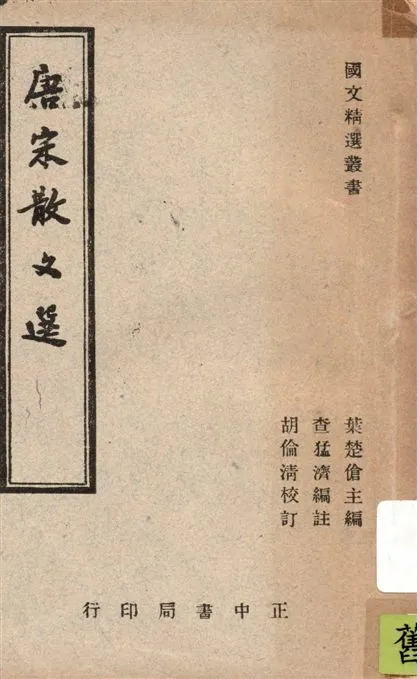 國文精選叢書
葉楚傖主編
查猛濟編註
胡倫清校訂
唐宋散文選
正中書局印行
舊